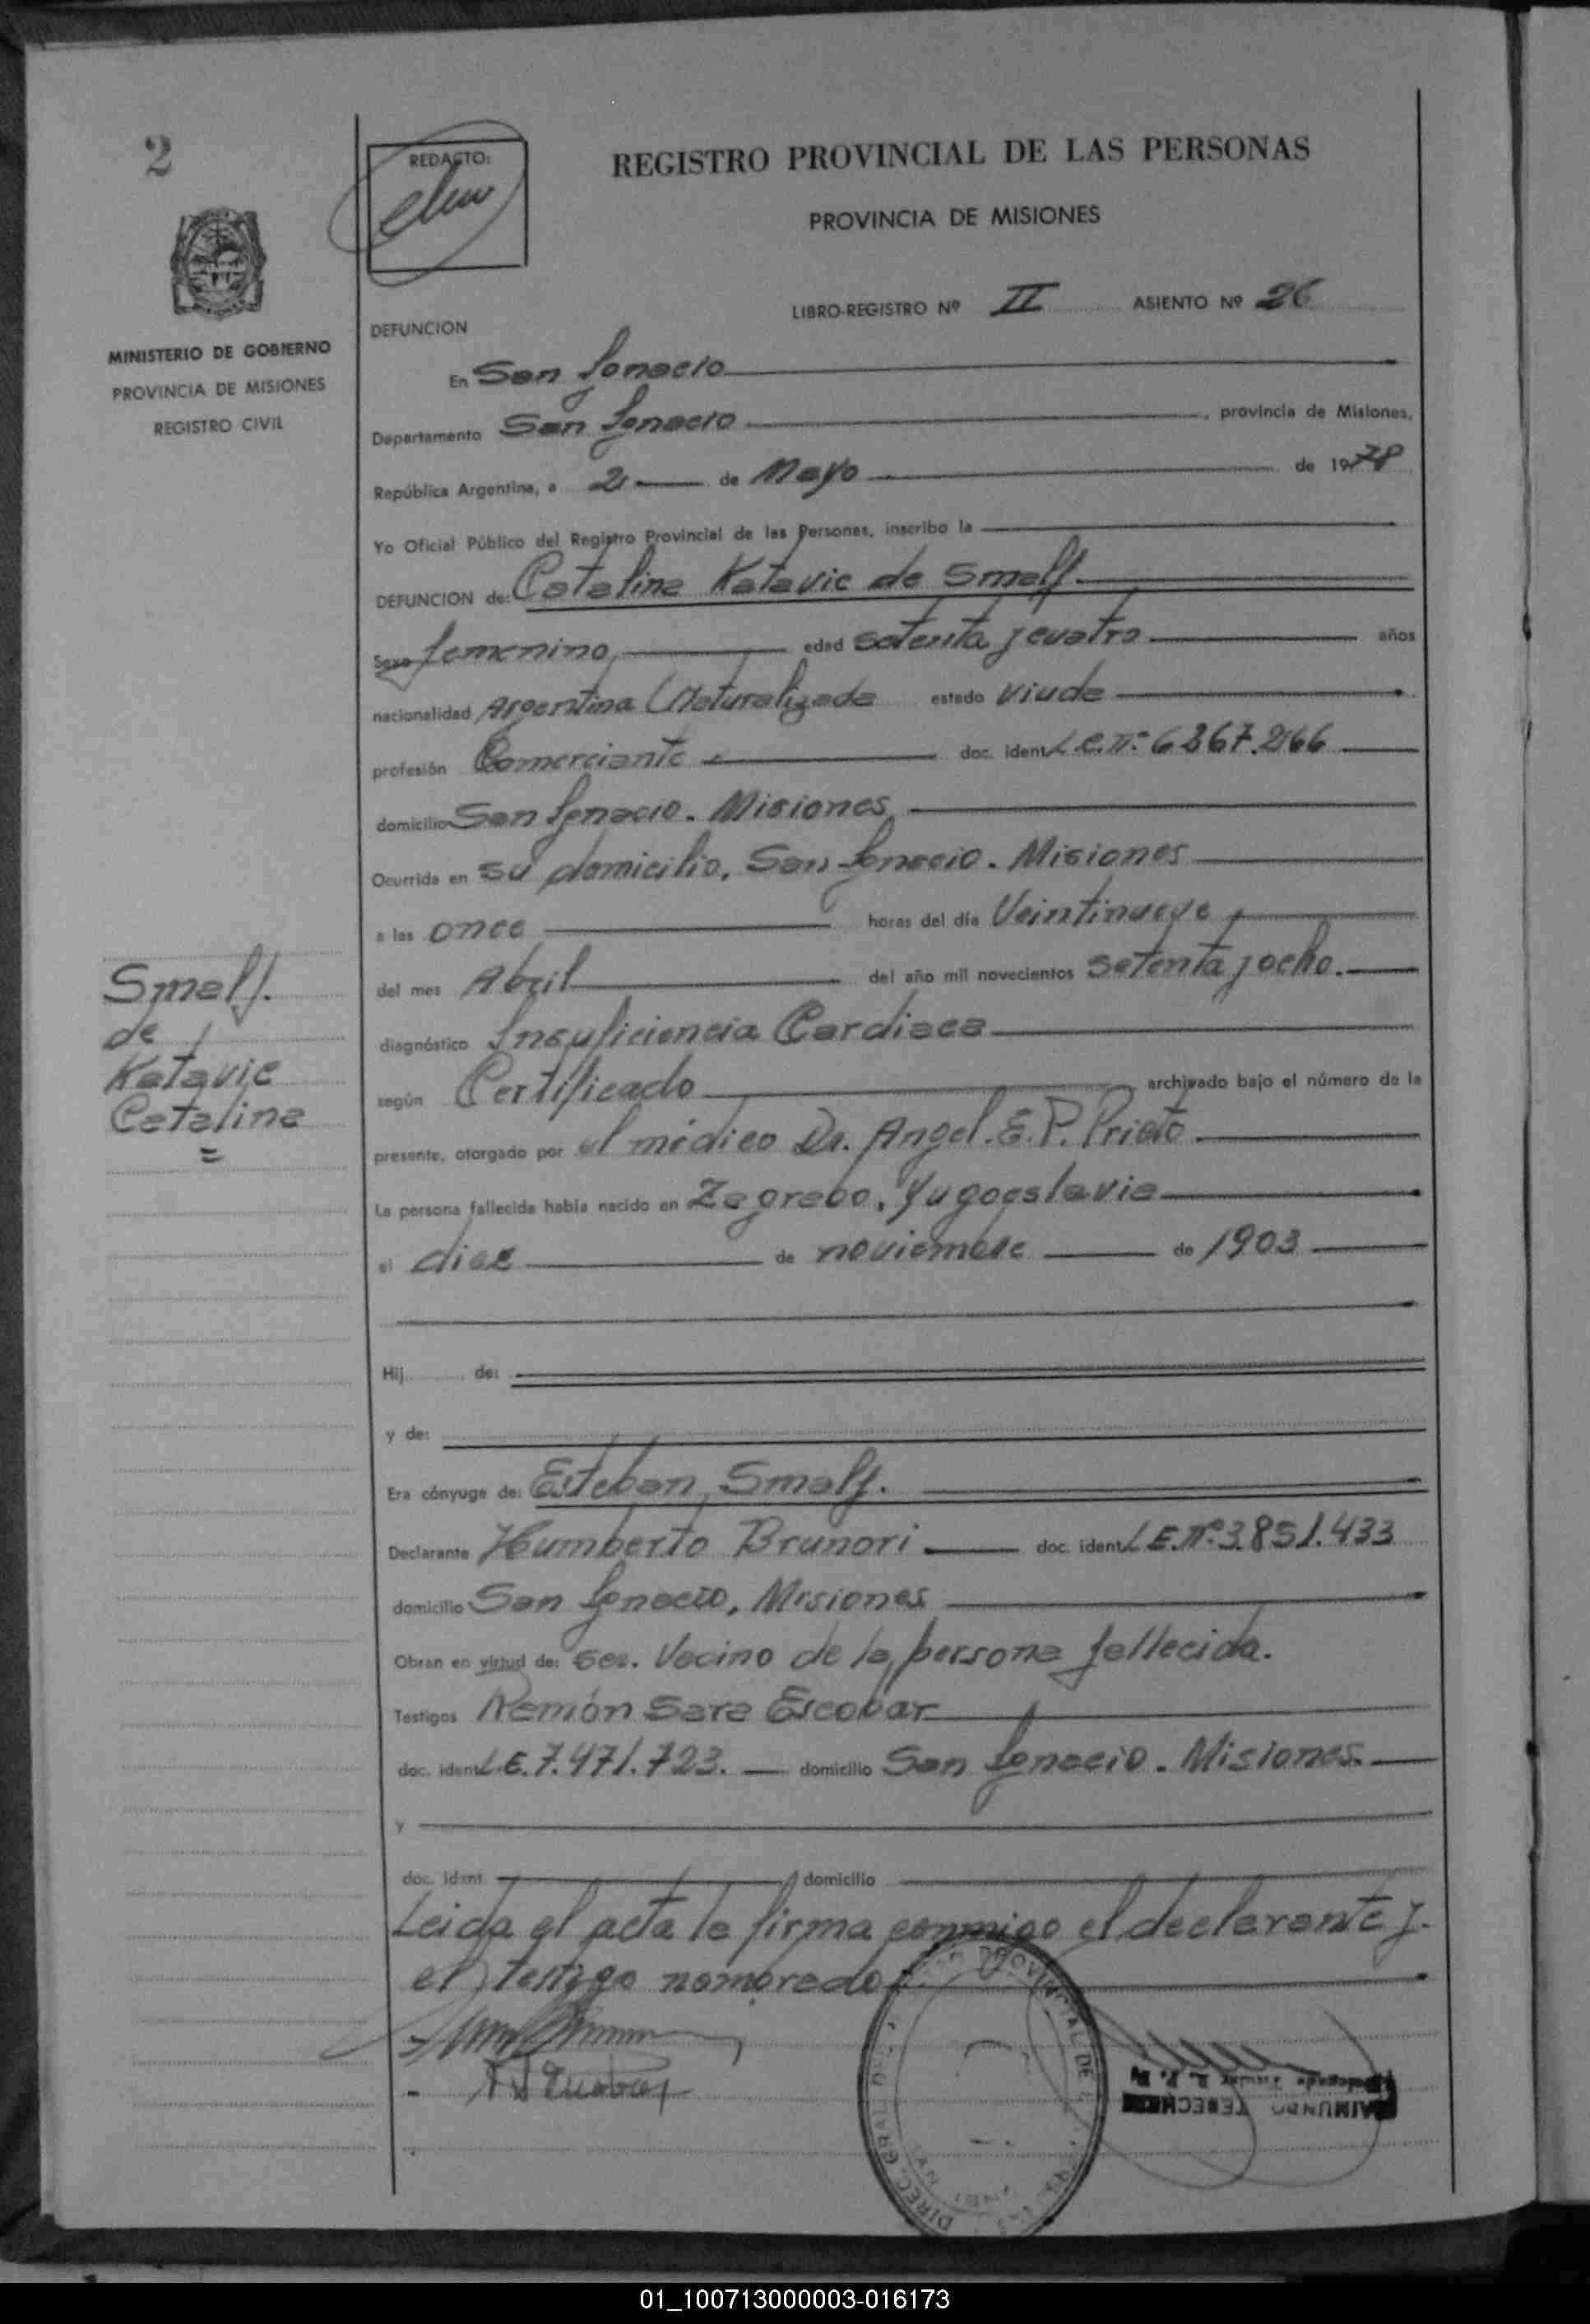 2
REDACTO:
REGISTRO PROVINCIAL DE LAS PERSONAS
PROVINCIA DE MISIONES
LIBRO-REGISTRO Nº II ASIENTO Nº 26
MINISTERIO DE GOBIERNO
PROVINCIA DE MISIONES
REGISTRO CIVIL
DEFUNCION
En San Ignacio
Departamento San Ignacio, provincia de Misiones,
República Argentina, a 2 de Mayo de 1978
Yo Oficial Público del Registro Provincial de las Personas, inscribo la
DEFUNCION de: Catalina Katavic de Smalj.
Sexo femenino, edad setenta y cuatro años
nacionalidad Argentina (Naturalizada estado viuda
profesión Comerciante doc. ident L.C. nº 6267.266
domicilio San Ignacio. Misiones
Ocurrida en su domicilio, San Ignacio. Misiones
a las once horas del día Veintinueve
del mes Abril del año mil novecientos setenta y ocho.
diagnóstico Insuficiencia Cardiaca
según Certificado archivado bajo el número de la
presente, otorgado por el médico Dr. Angel. E. P. Prieto.
La persona fallecida había nacido en Zagrebo, Yugoeslavia
el diez de noviembre de 1903
Smalj.
de
Katavic
Catalina
=
Hij de:
y de:
Era cónyuge de: Esteban Smalj.
Declarante Humberto Brunori doc. ident L.E. Nº 3.851.433
domicilio San Ignacio, Misiones
Obran en virtud de: ser. Vecino de la persona fallecida.
Testigos Ramón Sara Escobar
doc. ident L.E. 7.471.723. domicilio San Ignacio. Misiones.
y
doc. ident. domicilio
Leida el acta la firma conmigo el declarante y.
el testigo nombrado
PROVINCIAL DE
DIREC. GRAL
RAIMUNDO
01_100713000003-016173